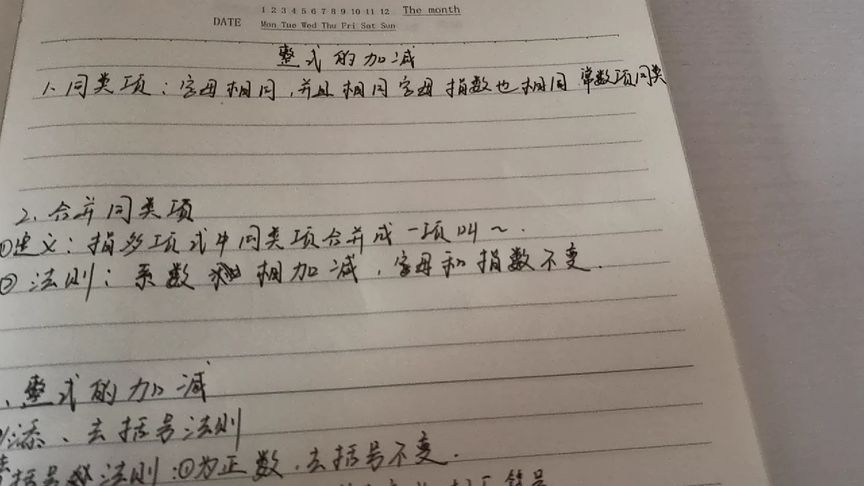 1 2 3 4 5 6 7 8 9 10 11 12 The month
DATE Mon Tue Wed Thu Fri Sat Sun
整式的加减
1、同类项：字母相同，并且相同字母指数也相同 常数项同类
2、合并同类项
①定义：指多项式中同类项合并成一项叫～.
② 法则：系数相加减，字母和指数不变.
、整式的加减
添、去括号法则
括号法则：①为正数，去括号不变.
符号